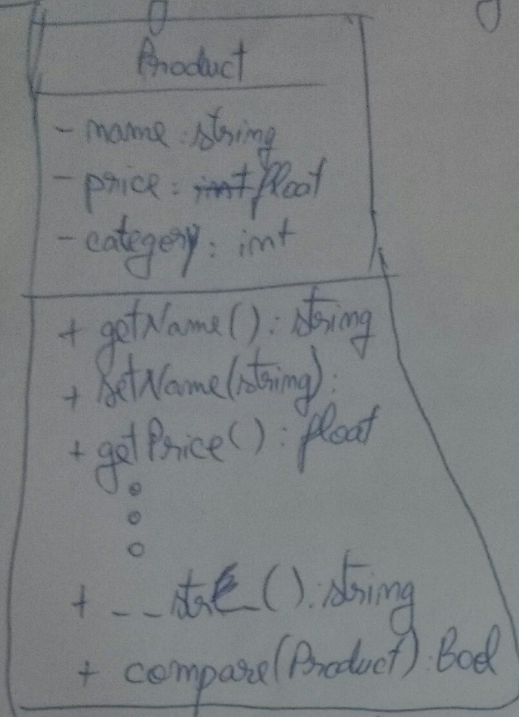 Product
- name : string
- price : float
- category : int
+ getName() : string
+ setName(string) :
+ getPrice() : float
+ __str__() : string
+ compare(Product) : Bool